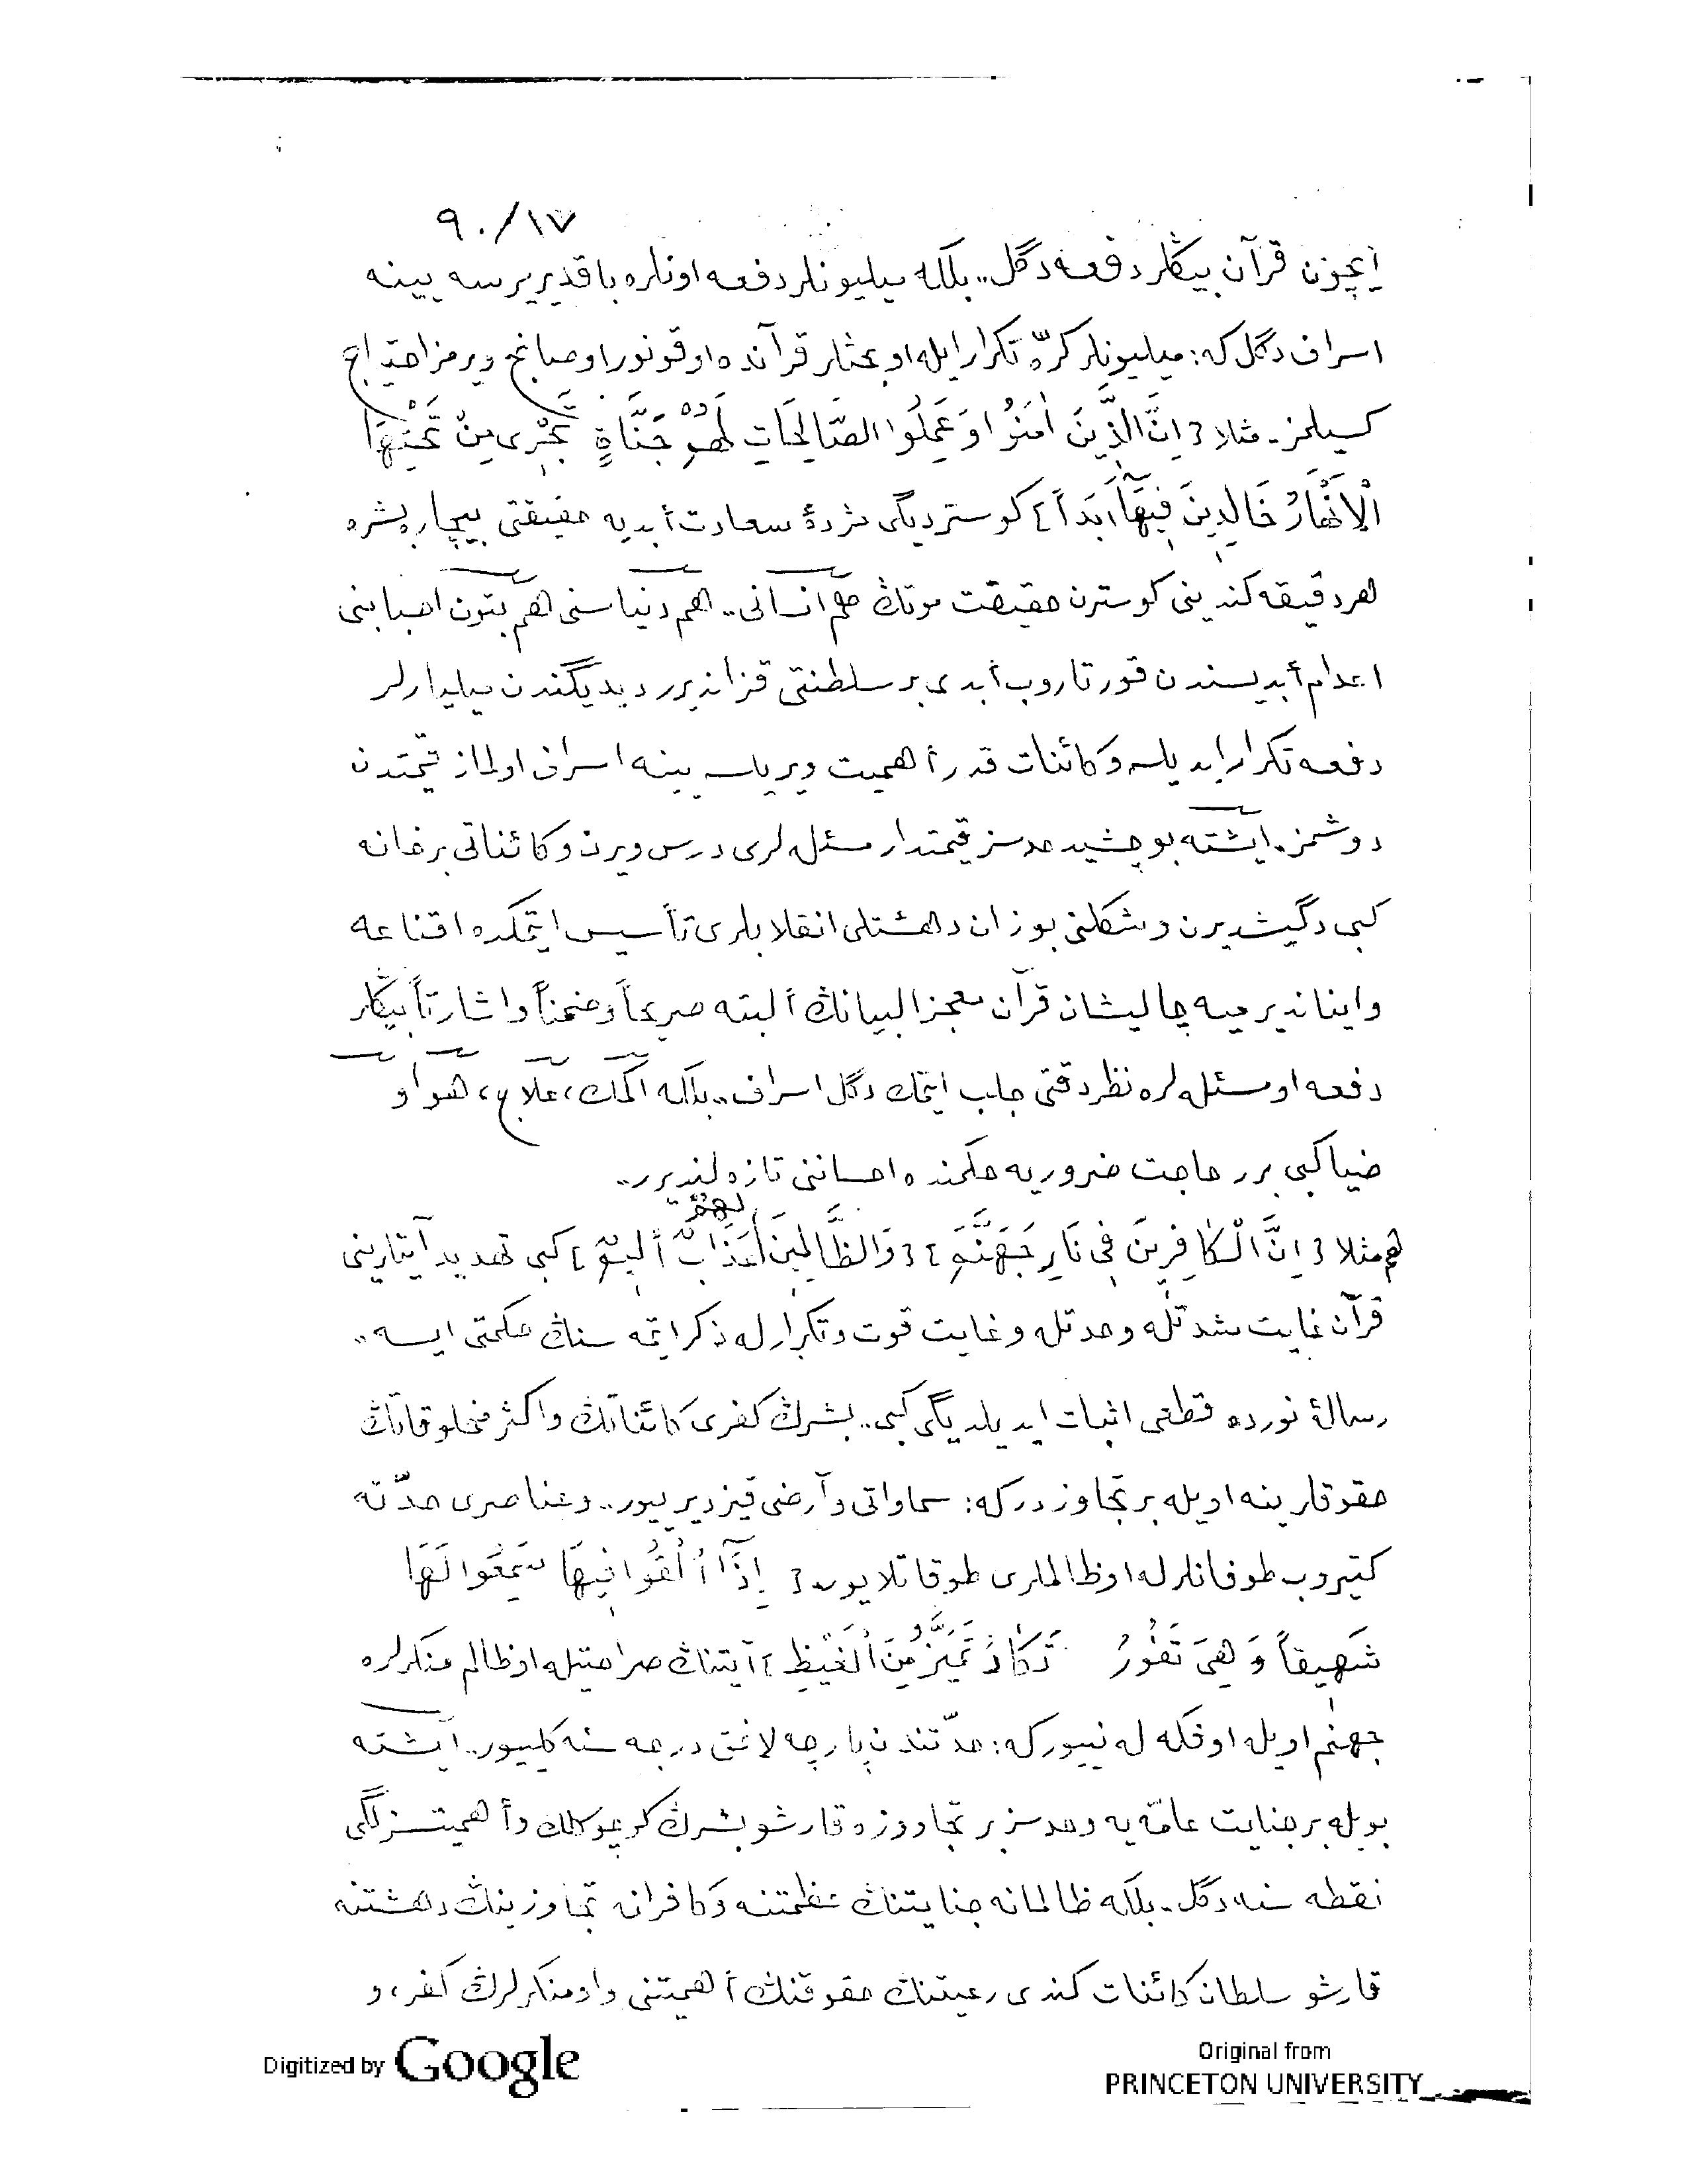 ٩٠/١٧
ایچون قرآن بیڭلر دفعه دگل.. بلكه میلیونلر دفعه اونلره باقدیریرسه یینه
اسراف دگل كه: میلیونلر كرّه تكرار ایله او بحثلر قرآنده اوقونور اوصانج ویرمز احتیاج
كسیلمز. مثلا {اِنَّ الَّذِینَ اٰمَنُوا وَعَمِلُوا الصَّالِحَاتِ لَهُمْ جَنَّاةٍ تَجْرِی مِنْ تَحْتِهَا
الْاَنْهَارُ خَالِدِینَ فِیهَٓا اَبَدًا} كوستردیگی مژدۀ سعادت أبدیه حقیقتی بیچاره بشره
هر دقیقه كندینی كوسترن حقیقت موتڭ هم انسانی.. هم دنیاسنی هم بتون احبابنی
اعدام أبدیسندن قورتاروب أبدی بر سلطنتی قزاندیرر دیدیگندن میلیارلر
دفعه تكرار ایدیلسه و كائنات قدر أهمیت ویریلسه یینه اسراف اولماز قیمتدن
دوشمز. ایشته بو چشید حدسز قیمتدار مسئله لری درس ویرن و كائناتی بر خانه
كبی دگیشدیرن و شكلنی بوزان دهشتلی انقلابلری تأسیس ایتمكده اقناعه
و ایناندیرمیه چالیشان قرآن معجز البیانڭ ألبته صریحاً و ضمناً و اشارتاً بیڭلر
دفعه او مسئله لره نظر دقتی جلب ایتمك دگل اسراف.. بلكه اكمك، علاج، هوا و
ضیا كبی برر حاجت ضروریه حكمنده احساننی تازه لندیرر..
هم مثلا {اِنَّ الْكَافِرِینَ فِی نَارِ جَهَنَّمَ} {وَالظَّالِمِینَ لَهُمْ عَذَابٌ أَلِیمٌ} كبی تهدید آیتلرینی
قرآن غایت شدتله و حدتله و غایت قوت و تكرارله ذكر ایتمه سنڭ حكمتی ایسه..
رسالۀ نورده قطعی اثبات ایدیلدیگی كبی.. بشرڭ كفری كائناتڭ و اكثر مخلوقاتڭ
حقوقلرینه اویله بر تجاوزدر كه: سماواتی و آرضی قیزدیرییور.. و عناصری حدّته
كتیروب طوفانلرله او ظالملری طوقاتلایور. {اِذَٓا اُلْقُوا فِیهَا سَمِعُوا لَهَا
شَهِیقاً وَ هِیَ تَفُورُ تَكَادُ تَمَیَّزُ مِنَ الْغَیْظِ} آیتنڭ صراحتیله او ظالم منكرلره
جهنم اویله اوفكه له نییور كه: حدّتندن پارچه لانمق درجه سنه كلییور.. ایشته
بویله بر جنایت عامّه یه و حدسز بر تجاووزه قارشو بشرڭ كوچوكلك و أهمیتسزلگی
نقطه سنه دگل.. بلكه ظالمانه جنایتنڭ عظمتنه و كافرانه تجاوزینڭ دهشتنه
قارشو سلطان كائنات كندی رعیتنڭ حقوقنڭ أهمیتنی و او منكرلرڭ كفر، و
Digitized by Google
Original from
PRINCETON UNIVERSITY